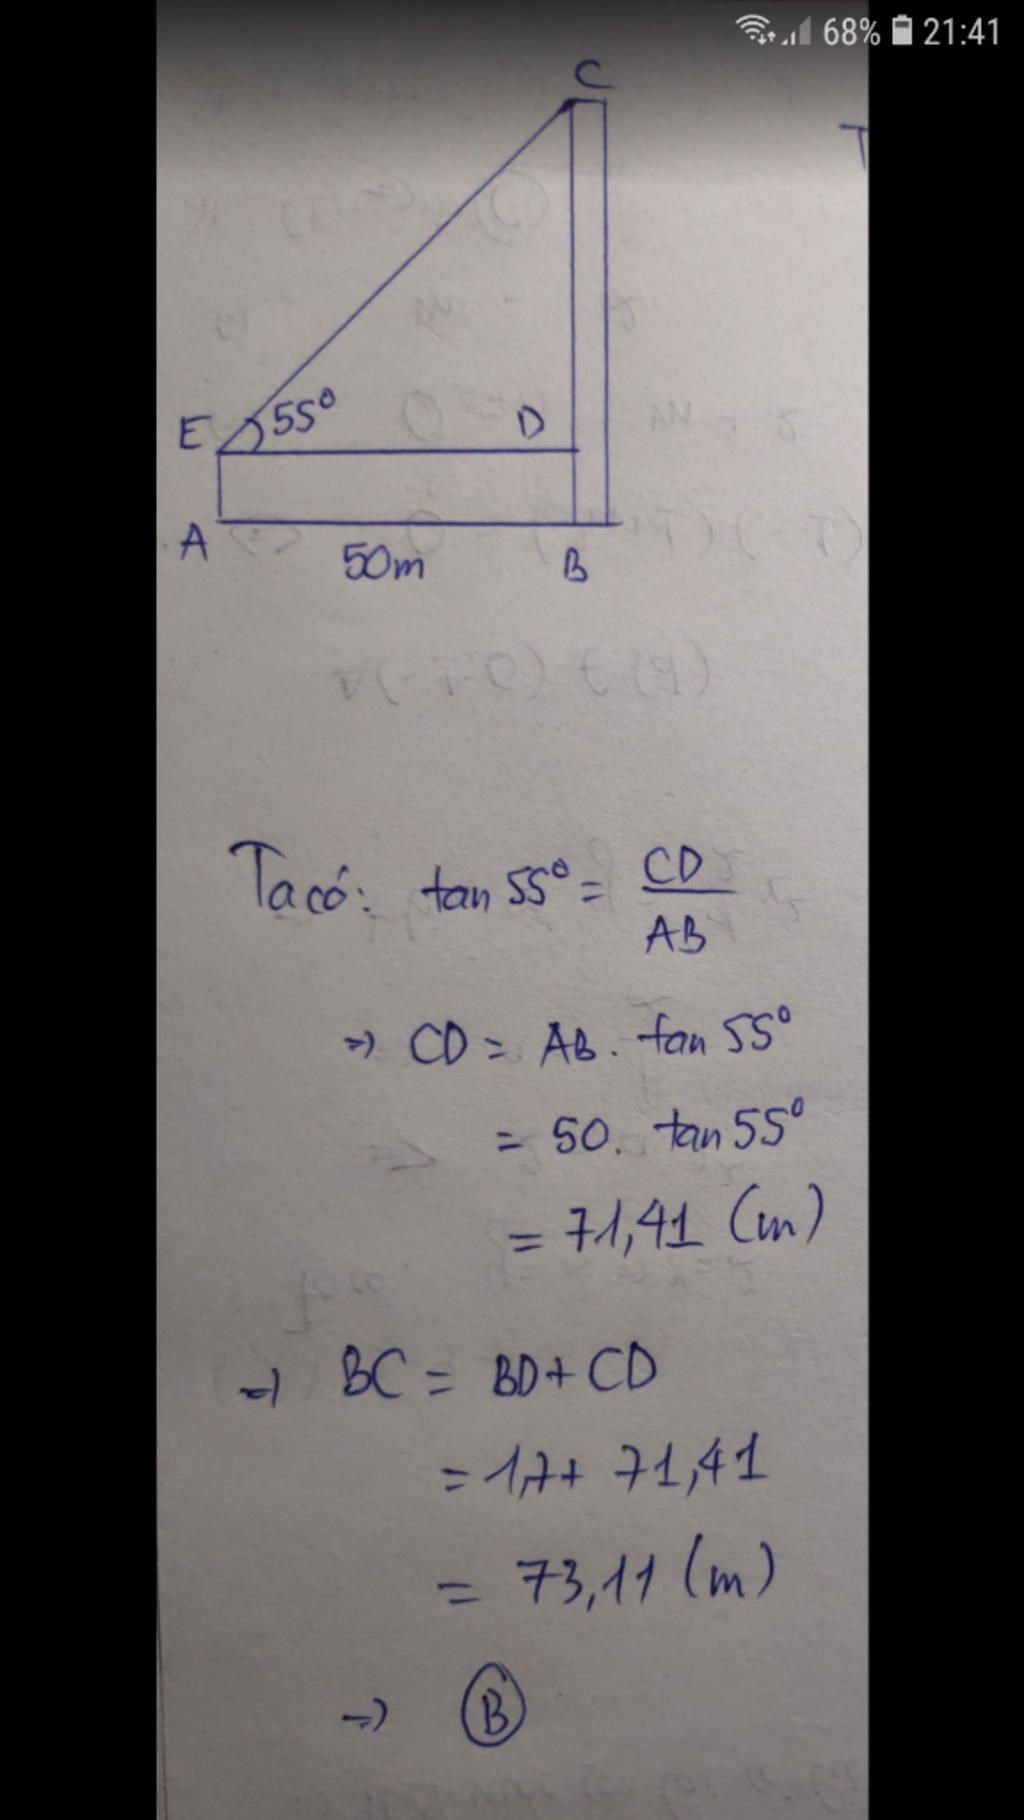 68% 21:41
C
T
E 55° D
A 50m B
Ta có: tan 55° = CD / AB
=> CD = AB. tan 55°
= 50. tan 55°
= 71,41 (m)
=> BC = BD + CD
= 1,7 + 71,41
= 73,11 (m)
=> B